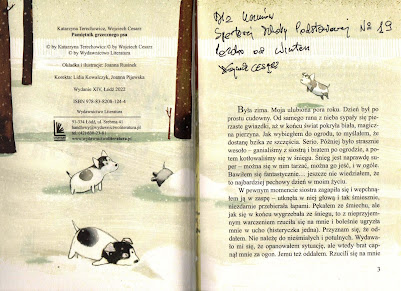 Katarzyna Terechowicz, Wojciech Cesarz
Pamiętnik grzecznego psa
© by Katarzyna Terechowicz & Wojciech Cesarz
© by Wydawnictwo Literatura
Okładka i ilustracje: Joanna Rusinek
Korekta: Lidia Kowalczyk, Joanna Pijewska
Wydanie XIV, Łódź 2022
ISBN 978-83-8208-124-4
Wydawnictwo Literatura
91-334 Łódź, ul. Srebrna 41
handlowy@wydawnictwoliteratura.pl
www.wydawnictwoliteratura.pl
Dla
Szkoły Podstawowej № 19
Wojciech Cesarz
Była zima. Moja ulubiona pora roku. Dzień był po
prostu cudowny. Od samego rana z nieba sypały się pie-
rzaste gwiazdki, aż w końcu świat pokryła biała, magicz-
na pierzyna. Jak wybiegłem do ogrodu, to myślałem, że
dostanę bzika ze szczęścia. Serio. Później było strasznie
wesoło – ganialiśmy z siostrą i bratem po ogrodzie, a po-
tem kotłowaliśmy się w śniegu. Śnieg jest naprawdę su-
per – można się w nim tarzać, można go jeść, i w ogóle.
Bawiłem się fantastycznie… jeszcze nie wiedziałem, że
to najbardziej pechowy dzień w moim życiu.
W pewnym momencie siostra zagapiła się i wepchną-
łem ją w zaspę – utknęła w niej głową i tak śmiesznie,
niezdarnie przebierała łapami. Pękałem ze śmiechu, ale
jak się w końcu wygrzebała ze śniegu, to z nieprzyjem-
nym warczeniem rzuciła się na mnie i boleśnie ugryzła
mnie w ucho (histeryczka jedna). Przyznam się, że od-
dałem. Nie należę do nieśmiałych i potulnych. Wydawa-
ło mi się, że opanowałem sytuację, ale wtedy brat cap-
nął mnie za ogon. Jemu też oddałem. Rzucili się na mnie
3